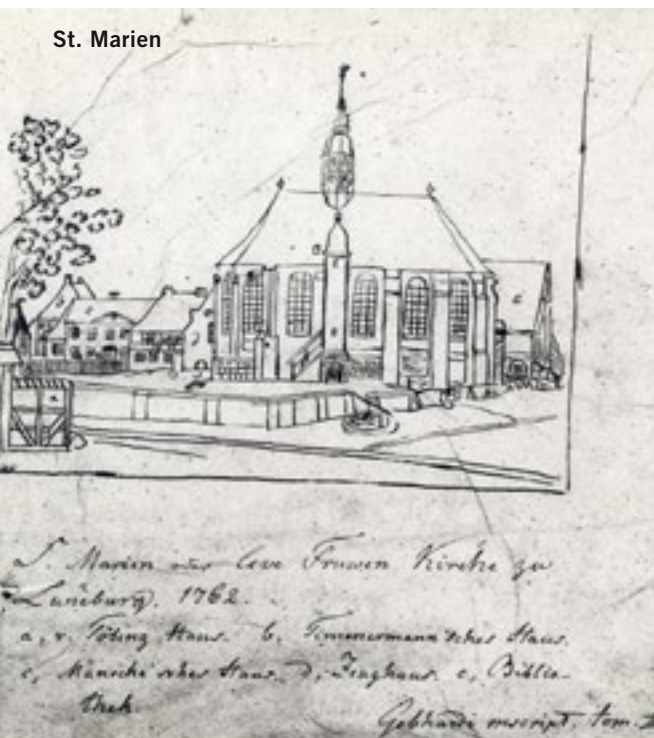 St. Marien
S. Marien oder leve Fruwen Kirche zu
Lüneburg. 1762.
a, v. Töbing Haus. b, Timmermann'sches Haus.
c, Haus. d, Zeughaus. e, Biblio-
thek
Gebhardi mscript. tom.